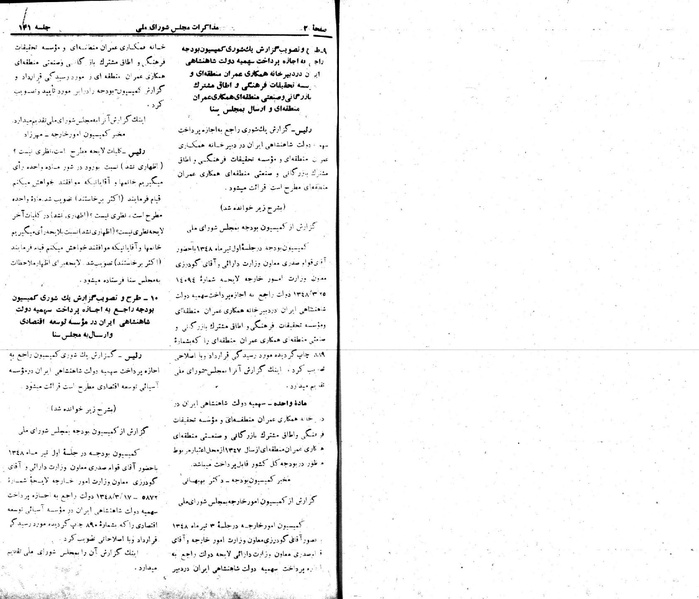 صفحهٔ ۲۰ مذاکرات مجلس شورای ملی جلسه ۱۴۱
۹ـ طرح و تصویب گزارش یك شوری کمیسیون بودجه
راجع به اجازه پرداخت سهمیه دولت شاهنشاهی
ایران در دبیرخانه همکاری عمران منطقه‌ای و
مؤسسه تحقیقات فرهنگی و اطاق مشترك
بازرگانی و صنعتی منطقه‌ای همکاری عمران
منطقه‌ای و ارسال بمجلس سنا
رئیس ـ گزارش یك شوری راجع به اجازه پرداخت
سهمیه دولت شاهنشاهی ایران در دبیرخانه همکاری
عمران منطقه‌ای و مؤسسه تحقیقات فرهنگی و اطاق
مشترك بازرگانی و صنعتی منطقه‌ای همکاری عمران
منطقه‌ای مطرح است قرائت میشود.
(بشرح زیر خوانده شد)
گزارش از کمیسیون بودجه بمجلس شورای ملی
کمیسیون بودجه در جلسهٔ اول تیر ماه ۱۳۴۸ با حضور
آقای قوام صدری معاون وزارت دارائی و آقای گودرزی
معاون وزارت امور خارجه لایحهٔ شمارهٔ ۱۴۰۹۴
۱۳۴۸/۳/۲۵ دولت راجع به اجازه پرداخت سهمیه دولت
شاهنشاهی ایران در دبیرخانه همکاری عمران منطقه‌ای
و مؤسسه تحقیقات فرهنگی و اطاق مشترك بازرگانی و
صنعتی منطقه‌ای همکاری عمران منطقه‌ای را که بشمارهٔ
۸۱۹ چاپ گردیده مورد رسیدگی قرار داد و با اصلاحی
تصویب کرد. اینك گزارش آنرا بمجلس شورای ملی
تقدیم میدارد.
مادهٔ واحده ـ سهمیه دولت شاهنشاهی ایران در
دبیرخانه همکاری عمران منطقه‌ای و مؤسسه تحقیقات
فرهنگی و اطاق مشترك بازرگانی و صنعتی منطقه‌ای
همکاری عمران منطقه‌ای از سال ۱۳۴۷ از محل اعتبار مربوط
منظور در بودجه کل کشور قابل پرداخت میباشد.
مخبر کمیسیون بودجه ـ دکتر بهبهانی
گزارش از کمیسیون امور خارجه بمجلس شورای ملی
کمیسیون امور خارجه در جلسهٔ ۳ تیر ماه ۱۳۴۸
با حضور آقای گودرزی معاون وزارت امور خارجه و آقای
قوام صدری معاون وزارت دارائی لایحهٔ دولت راجع به
اجازه پرداخت سهمیه دولت شاهنشاهی ایران در دبیر
خانه همکاری عمران منطقه‌ای و مؤسسه تحقیقات
فرهنگی و اطاق مشترك بازرگانی و صنعتی منطقه‌ای
همکاری عمران منطقه‌ای را مورد رسیدگی قرار داد و
گزارش کمیسیون بودجه را در این مورد تأیید و تصویب
کرد.
اینك گزارش آنرا به مجلس شورای ملی تقدیم میدارد.
مخبر کمیسیون امور خارجه ـ مهرزاد
رئیس ـ کلیات لایحه مطرح است، نظری نیست؟
(اظهاری نشد) نسبت بورود در شور مادهٔ واحده رأی
میگیریم خانمها و آقایانیکه موافقند خواهش میکنم
قیام فرمایند (اکثر برخاستند) تصویب شد. مادهٔ واحده
مطرح است. نظری نیست؟ (اظهاری نشد) در کلیات آخر
لایحه نظری نیست؟ (اظهاری نشد) نسبت بلایحه رأی میگیریم
خانمها و آقایانیکه موافقند خواهش میکنم قیام فرمایند
(اکثر برخاستند) تصویب شد لایحه برای اظهار ملاحظات
به مجلس سنا فرستاده میشود.
۱۰ ـ طرح و تصویب گزارش یك شوری کمیسیون
بودجه راجع به اجازه پرداخت سهمیه دولت
شاهنشاهی ایران در مؤسسهٔ توسعه اقتصادی
و ارسال به مجلس سنا
رئیس ـ گزارش یك شوری کمیسیون راجع به
اجازه پرداخت سهمیه دولت شاهنشاهی ایران در مؤسسه
آسیائی توسعه اقتصادی مطرح است قرائت میشود.
(بشرح زیر خوانده شد)
گزارش از کمیسیون بودجه بمجلس شورای ملی
کمیسیون بودجه در جلسهٔ اول تیر ماه ۱۳۴۸
با حضور آقای قوام صدری معاون وزارت دارائی و آقای
گودرزی معاون وزارت امور خارجه لایحهٔ شمارهٔ
۵۸۷۲ ـ ۱۳۴۸/۳/۱۷ دولت راجع به اجازه پرداخت
سهمیه دولت شاهنشاهی ایران در مؤسسه آسیائی توسعه
اقتصادی را که بشمارهٔ ۸۹۰ چاپ گردیده مورد رسیدگی
قرار داد و با اصلاحاتی تصویب کرد.
اینك گزارش آن را بمجلس شورای ملی تقدیم
میدارد.